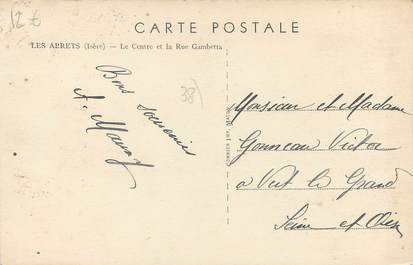 12 €
CARTE POSTALE
LES ABRETS (Isère) — Le Centre et la Rue Gambetta
38
Bons souvenirs
A.
Monsieur et Madame
Gonneau Victor
a Vert le Grand
Seine et Oise